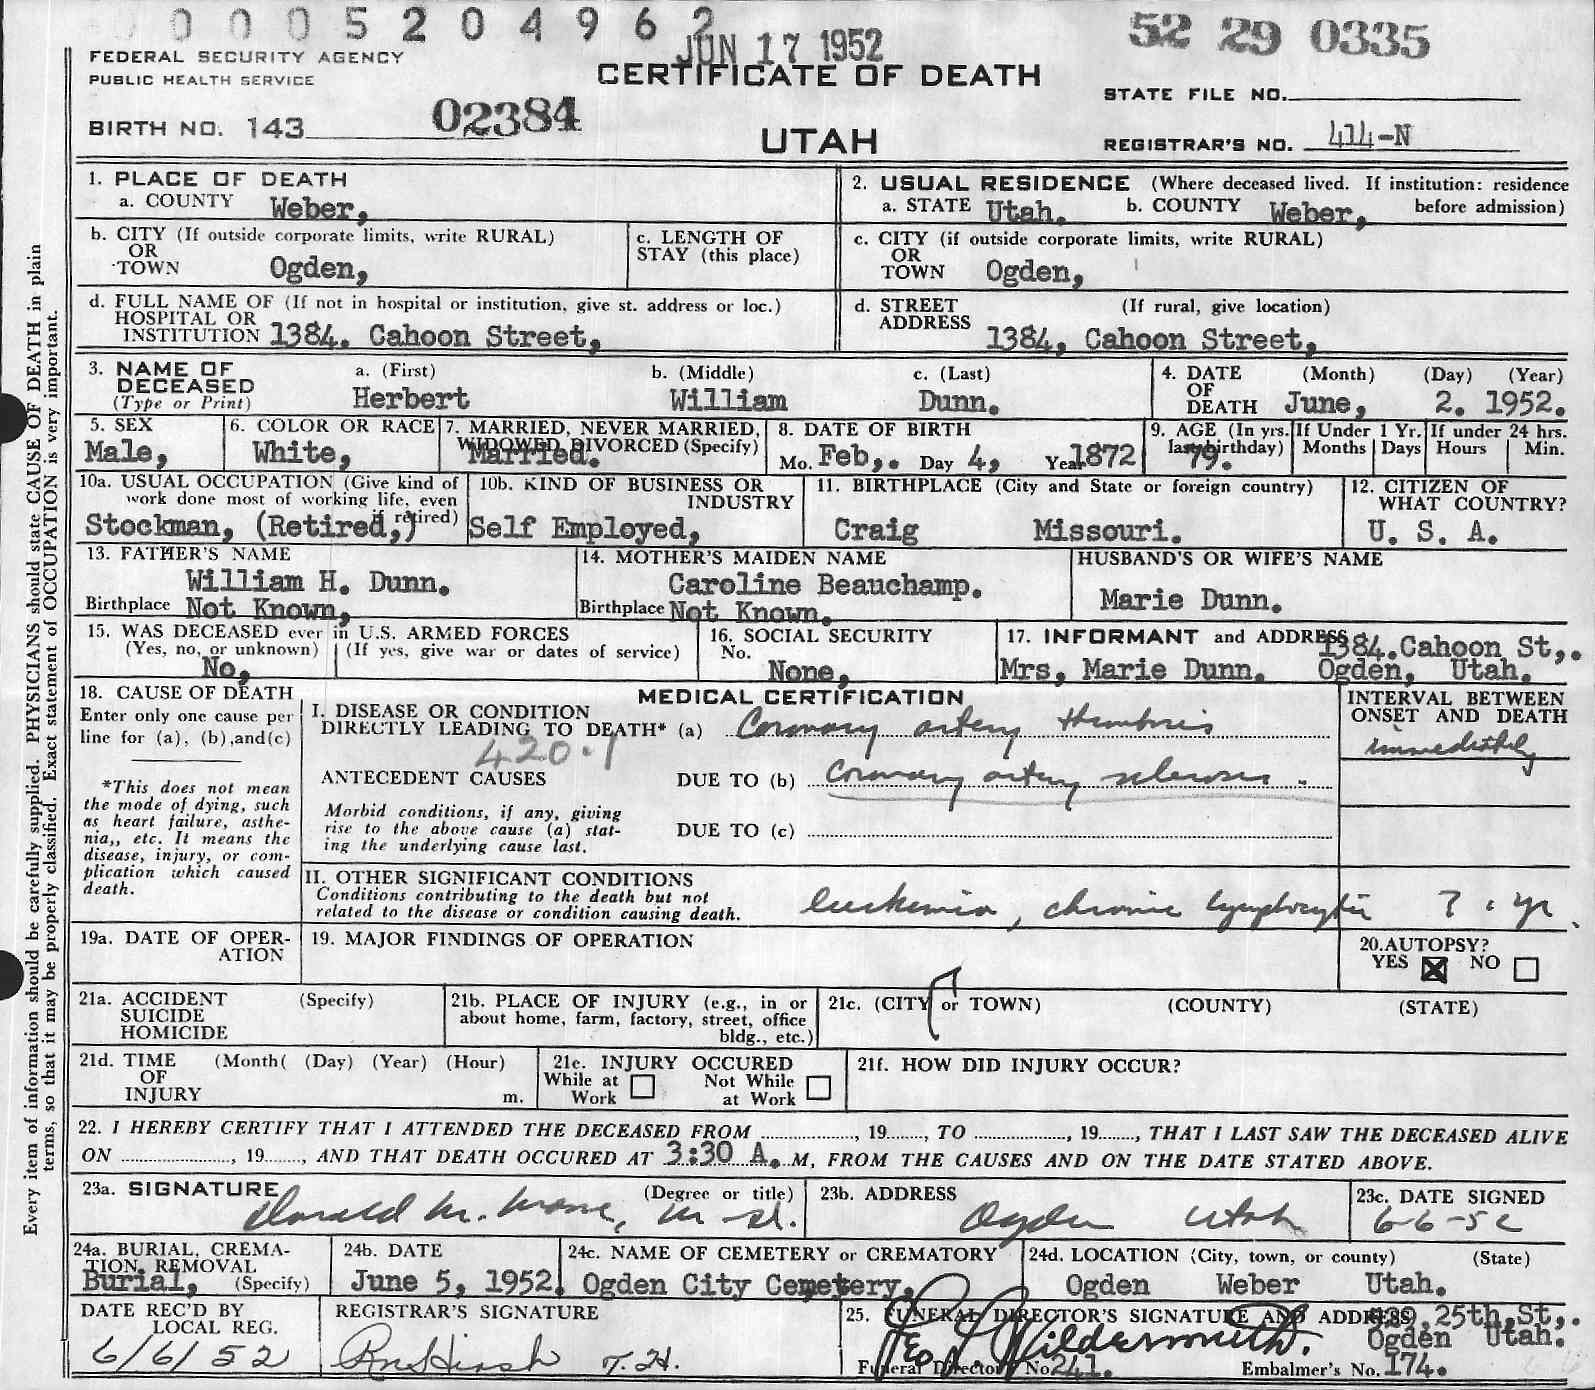 0 0 0 5 2 0 4 9 6 2
JUN 17 1952
52 29 0335
FEDERAL SECURITY AGENCY
PUBLIC HEALTH SERVICE
CERTIFICATE OF DEATH
STATE FILE NO.
BIRTH NO. 143
02384
UTAH
REGISTRAR'S NO. 414-N
Every item of information should be carefully supplied. PHYSICIANS should state CAUSE OF DEATH in plain
terms, so that it may be properly classified. Exact statement of OCCUPATION is very important.
1. PLACE OF DEATH
a. COUNTY Weber,
2. USUAL RESIDENCE (Where deceased lived. If institution: residence
a. STATE Utah. b. COUNTY Weber, before admission)
b. CITY (If outside corporate limits, write RURAL)
OR
TOWN Ogden,
c. LENGTH OF
STAY (this place)
c. CITY (if outside corporate limits, write RURAL)
OR
TOWN Ogden,
d. FULL NAME OF (If not in hospital or institution, give st. address or loc.)
HOSPITAL OR
INSTITUTION 1384. Cahoon Street,
d. STREET (If rural, give location)
ADDRESS 1384, Cahoon Street,
3. NAME OF a. (First) b. (Middle) c. (Last)
DECEASED
(Type or Print) Herbert William Dunn.
4. DATE (Month) (Day) (Year)
OF
DEATH June, 2. 1952.
5. SEX
Male,
6. COLOR OR RACE
White,
7. MARRIED, NEVER MARRIED,
WIDOWED, DIVORCED (Specify)
Married.
8. DATE OF BIRTH
Mo. Feb,. Day 4, Year 1872
9. AGE (In yrs.
last birthday)
79.
If Under 1 Yr.
Months Days
If under 24 hrs.
Hours Min.
10a. USUAL OCCUPATION (Give kind of
work done most of working life, even
if retired)
Stockman, (Retired,)
10b. KIND OF BUSINESS OR
INDUSTRY
Self Employed,
11. BIRTHPLACE (City and State or foreign country)
Craig Missouri.
12. CITIZEN OF
WHAT COUNTRY?
U. S. A.
13. FATHER'S NAME
William H. Dunn.
Birthplace Not Known,
14. MOTHER'S MAIDEN NAME
Caroline Beauchamp.
Birthplace Not Known.
HUSBAND'S OR WIFE'S NAME
Marie Dunn.
15. WAS DECEASED ever in U.S. ARMED FORCES
(Yes, no, or unknown) (If yes, give war or dates of service)
No,
16. SOCIAL SECURITY
No.
None,
17. INFORMANT and ADDRESS 1384.Cahoon St,.
Mrs, Marie Dunn. Ogden, Utah.
18. CAUSE OF DEATH
Enter only one cause per
line for (a), (b),and(c)
*This does not mean
the mode of dying, such
as heart failure, asthe-
nia,, etc. It means the
disease, injury, or com-
plication which caused
death.
MEDICAL CERTIFICATION
I. DISEASE OR CONDITION
DIRECTLY LEADING TO DEATH* (a) Coronary artery thrombosis
420.1
ANTECEDENT CAUSES DUE TO (b) coronary artery sclerosis.
Morbid conditions, if any, giving
rise to the above cause (a) stat-
ing the underlying cause last.
DUE TO (c)
INTERVAL BETWEEN
ONSET AND DEATH
immediately
II. OTHER SIGNIFICANT CONDITIONS
Conditions contributing to the death but not
related to the disease or condition causing death.
leukemia, chronic lymphocytic ? 1 yr.
19a. DATE OF OPER-
ATION
19. MAJOR FINDINGS OF OPERATION
20.AUTOPSY?
YES NO
21a. ACCIDENT (Specify)
SUICIDE
HOMICIDE
21b. PLACE OF INJURY (e.g., in or
about home, farm, factory, street, office
bldg., etc.)
21c. (CITY or TOWN) (COUNTY) (STATE)
21d. TIME (Month( (Day) (Year) (Hour)
OF
INJURY m.
21e. INJURY OCCURED
While at Not While
Work at Work
21f. HOW DID INJURY OCCUR?
22. I HEREBY CERTIFY THAT I ATTENDED THE DECEASED FROM ............, 19......, TO ............, 19......, THAT I LAST SAW THE DECEASED ALIVE
ON ............, 19......, AND THAT DEATH OCCURED AT 3:30 A. M, FROM THE CAUSES AND ON THE DATE STATED ABOVE.
23a. SIGNATURE (Degree or title)
Donald M. Moore, M.D.
23b. ADDRESS
Ogden Utah
23c. DATE SIGNED
6-6-52
24a. BURIAL, CREMA-
TION, REMOVAL
Burial, (Specify)
24b. DATE
June 5, 1952.
24c. NAME OF CEMETERY or CREMATORY
Ogden City Cemetery,
24d. LOCATION (City, town, or county) (State)
Ogden Weber Utah.
DATE REC'D BY
LOCAL REG.
6/6/52
REGISTRAR'S SIGNATURE
25. FUNERAL DIRECTOR'S SIGNATURE AND ADDRESS 929, 25th,St,.
Leo J. Wildermuth. Ogden Utah.
Funeral Director No 241. Embalmer's No. 174.